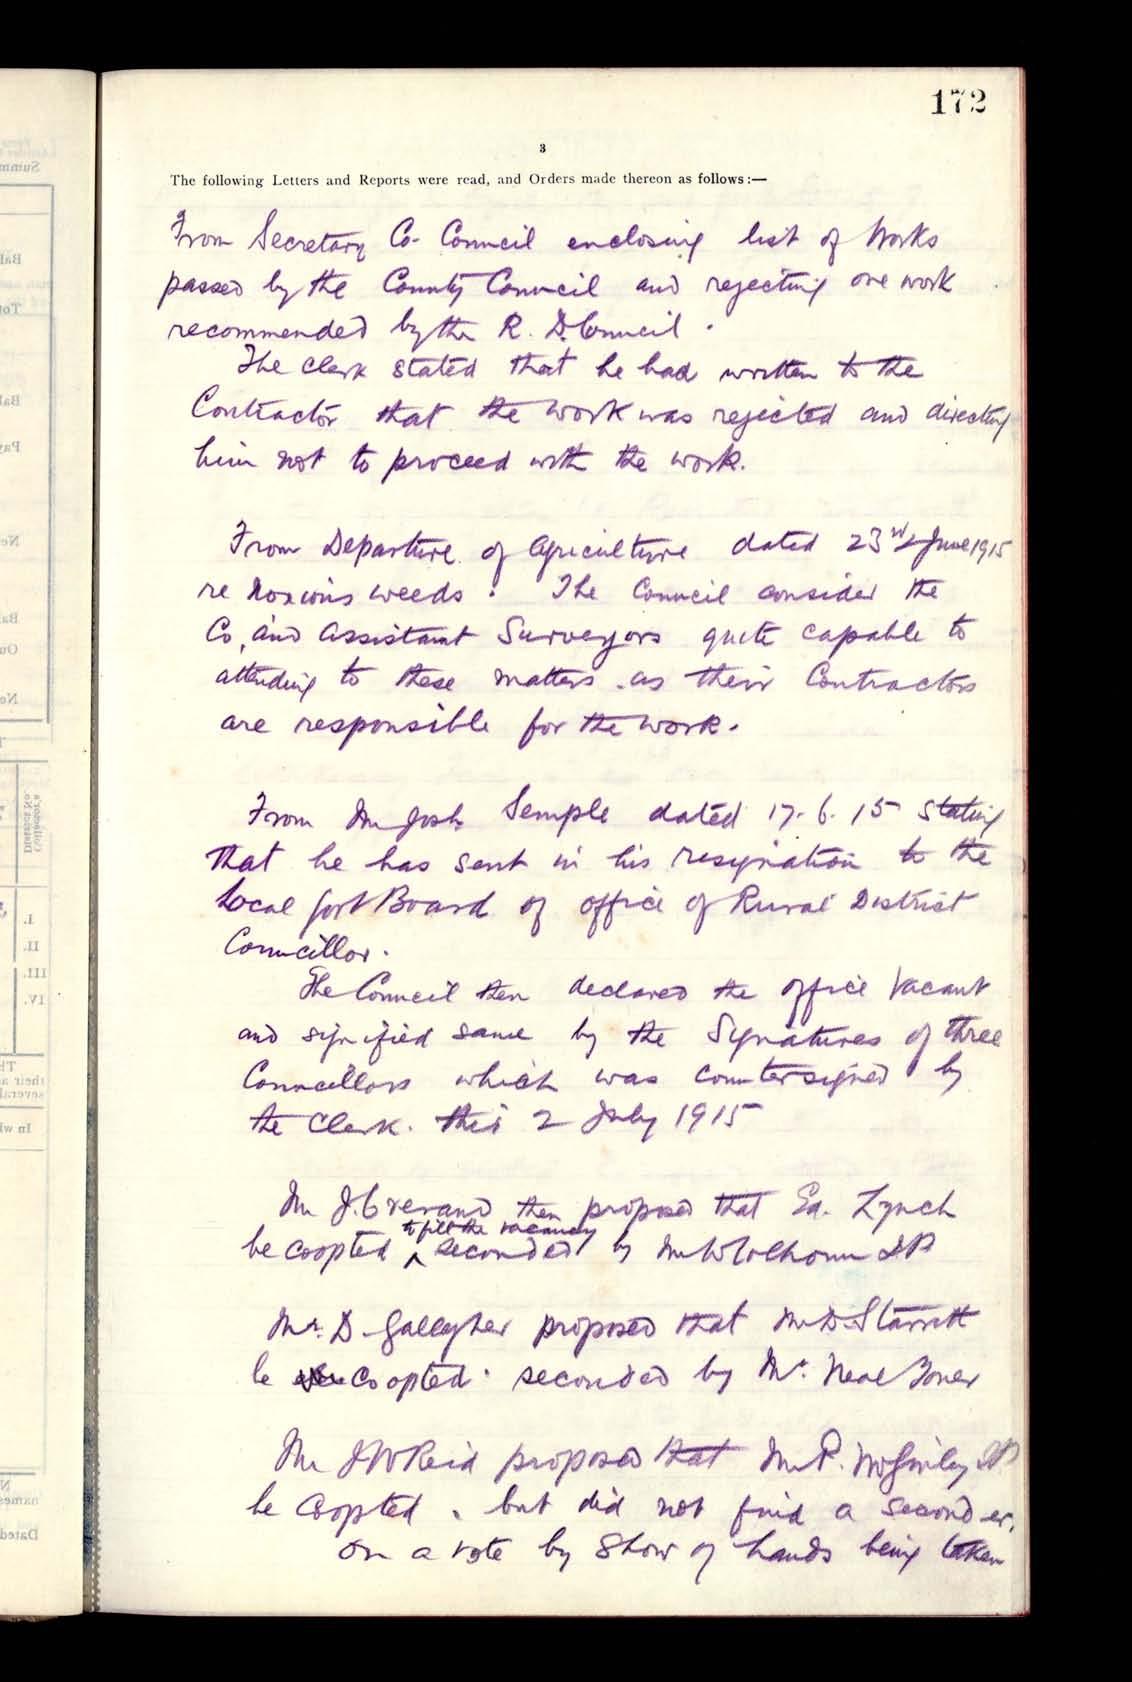 172
3
The following Letters and Reports were read, and Orders made thereon as follows:—
From Secretary Co. Council enclosing list of Works
passed by the County Council and rejecting one work
recommended by the R. D. Council.
The Clerk stated that he had written to the
Contractor that the work was rejected and directing
him not to proceed with the work.
From Departure of Agriculture dated 23rd June 1915
re Noxious weeds. The Council consider the
Co, and Assistant Surveyors quite capable to
attending to these matters as their Contractors
are responsible for the work.
From Mr Josh Semple dated 17.6.15 stating
that he has sent in his resignation to the
Local Govt Board of office of Rural District
Councillor.
The Council then declared the office vacant
and signified same by the Signatures of three
Councillors which was countersigned by
the Clerk. this 2 July 1915
Mr J. Crerand then proposed that Ed. Lynch
to fill the vacancy
be coopted ^ seconded by Mr W Colhoun JP
Mr. D Gallagher proposed that Mr D. Starrett
be coopted. seconded by Mr. Neal Boner
Mr J W Reid proposed that Mr P. McGinley JP
be coopted. but did not find a seconder.
On a vote by Show of hands being taken